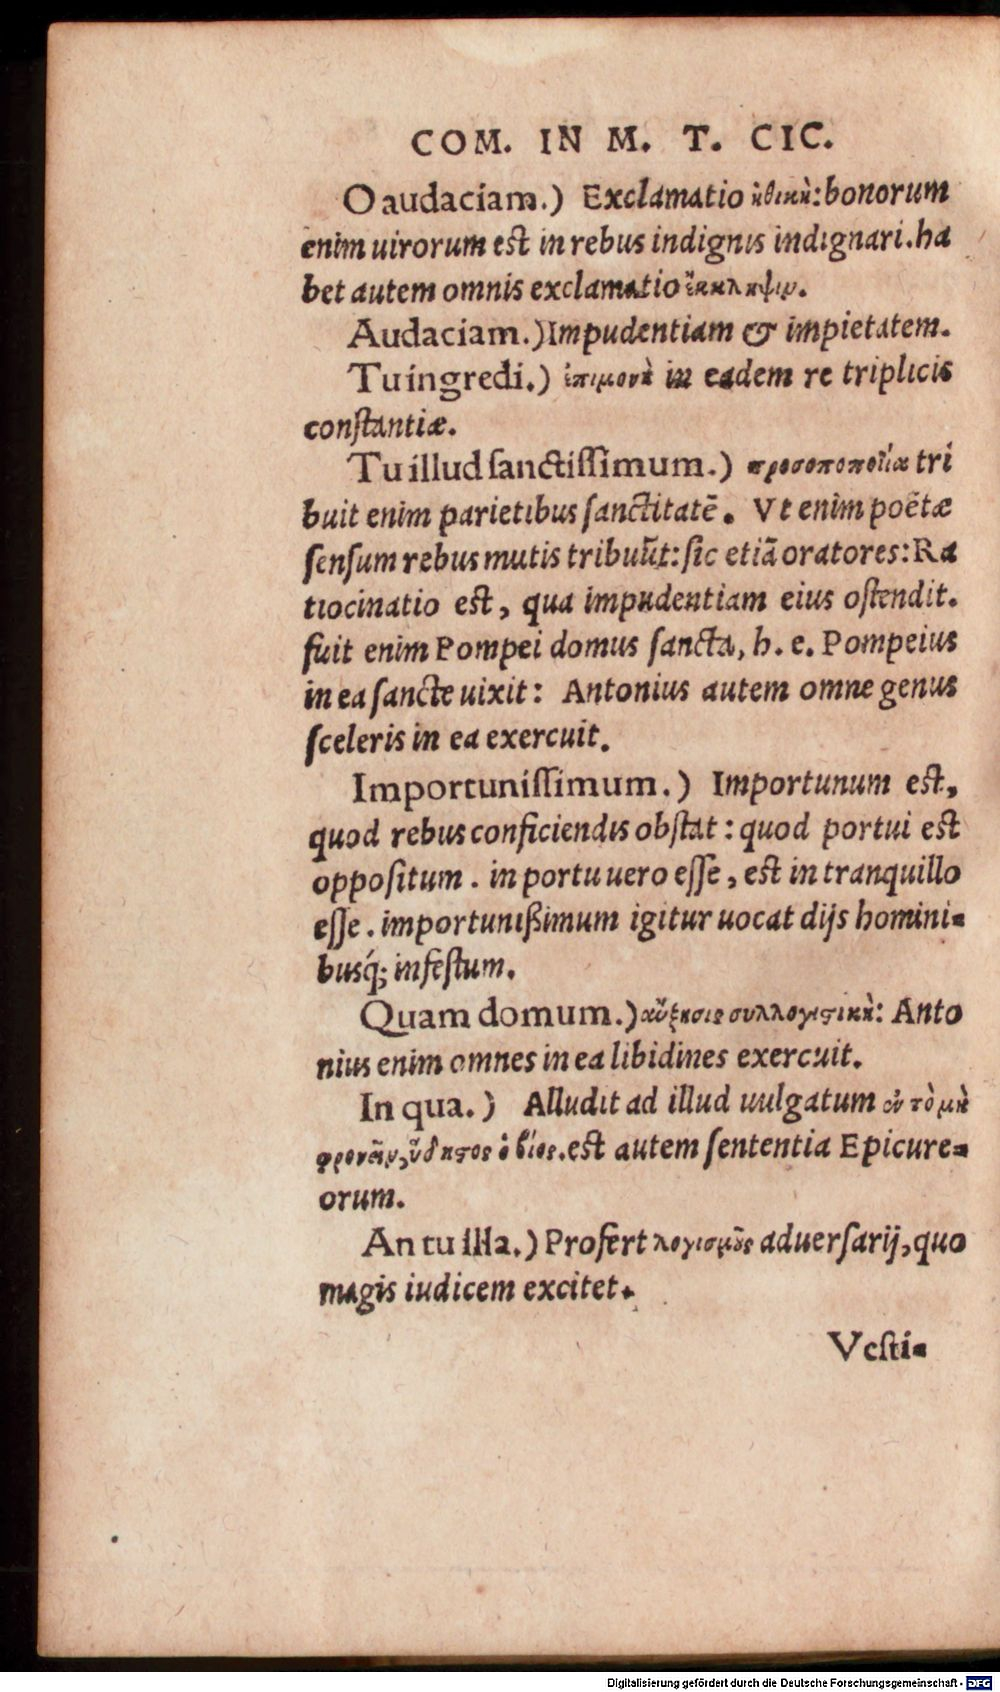 COM. IN M. T. CIC.
O audaciam.) Exclamatio ἠθικὴ: bonorum
enim uirorum est in rebus indignis indignari. ha
bet autem omnis exclamatio ἔκπληξιν.
Audaciam.) Impudentiam & impietatem.
Tu ingredi.) ἐπιμονὴ in eadem re triplicis
constantiæ.
Tu illud sanctissimum.) προσοποποιΐα tri
buit enim parietibus sanctitatē. Vt enim poëtæ
sensum rebus mutis tribuūt: sic etiā oratores: Ra
tiocinatio est, qua impudentiam eius ostendit.
fuit enim Pompei domus sancta, h. e. Pompeius
in ea sancte uixit: Antonius autem omne genus
sceleris in ea exercuit.
Importunissimum.) Importunum est,
quod rebus conficiendis obstat: quod portui est
oppositum. in portu uero esse, est in tranquillo
esse. importunißimum igitur uocat dijs homini-
busq́; infestum.
Quam domum.) αὔξησις συλλογιστικὴ: Anto
nius enim omnes in ea libidines exercuit.
In qua.) Alludit ad illud uulgatum ἐν τὸ μὴ
φρονεῖν, ἥδιστος ὁ βίος. est autem sententia Epicure-
orum.
An tu illa.) Profert λογισμὸς aduersarij, quo
magis iudicem excitet.
Vesti-
Digitalisierung gefördert durch die Deutsche Forschungsgemeinschaft - DFG